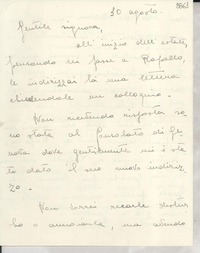 30 agosto.
Gentile signora,
all'inizio dell'estate,
pensando Lei fosse a Rapallo,
le indirizzai là una lettera
chiedendole un colloquio.
Non ricevendo risposta so=
no stata al Consolato di Ge=
nova dove gentilmente mi è sta=
to dato il suo nuovo indiriz=
zo.
Non vorrei recarle distur
bo o annoiarla, ma avendo